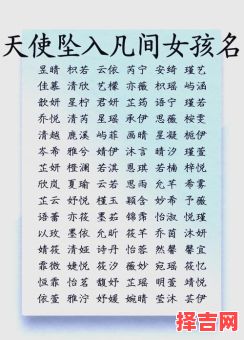 天使坠入凡间女孩名
昱晴 枳若 云依 芮宁 安绮 瑾艺
佳慕 清欣 艺檬 亦薇 枳瑶 屿涵
歆妍 星柠 君妍 芷筠 语宁 瑾若
乔悦 清芮 星瑶 承伊 思薇 桉雯
清越 鹿溪 屿菲 画晴 星凝 栀伊
岑希 雅兮 婧伊 沐汐 诗玥 萱
芷妍 橙澜 若淇 恩琪 若楠 梓悦
欣岚 夏瑜 云若 思雨 允芊 希雾
芷云 妤悦 槿玉 颖含 妙希 予薇
语蕾 亦筱 墨茹 锦霈 怡淑 悦瑾
以玫 墨依 允昕 筱芊 乔茵 沐妍
婧筱 清娅 诗丹 怡蓉 然馨 馨宜
霏微 婕悦 筱汐 薇妙 宛瑶 筱忆
恒霏 怡茗 馥妍 雅姿 瑶瑶 萱悦
依萱 雅泞 妤媛 婉晴 萱沐 芸伊
择吉网